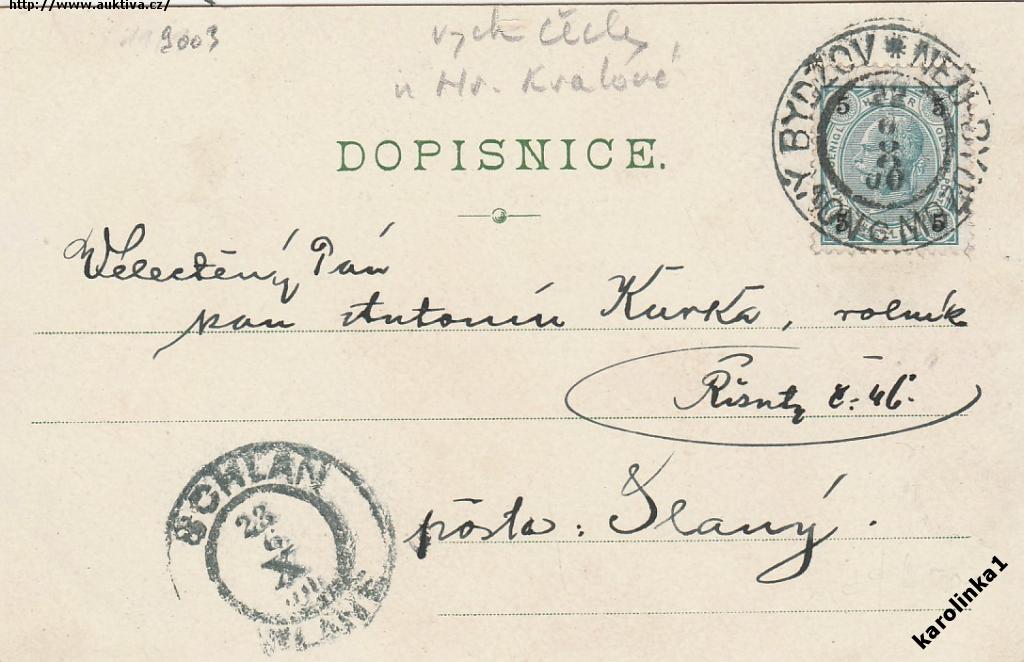 http://www.auktiva.cz/
9003
vých Čechy,
u Hr. Králové
DOPISNICE.
Velectěný Pán
pan Antonín Kurka, rolník
Řisuty č. 46.
pošta: Slaný.
NEU BYDŽOV * NOVÝ BYDŽOV
5 5
5 5
SCHLAN
23
SLANÉ
karolinka1